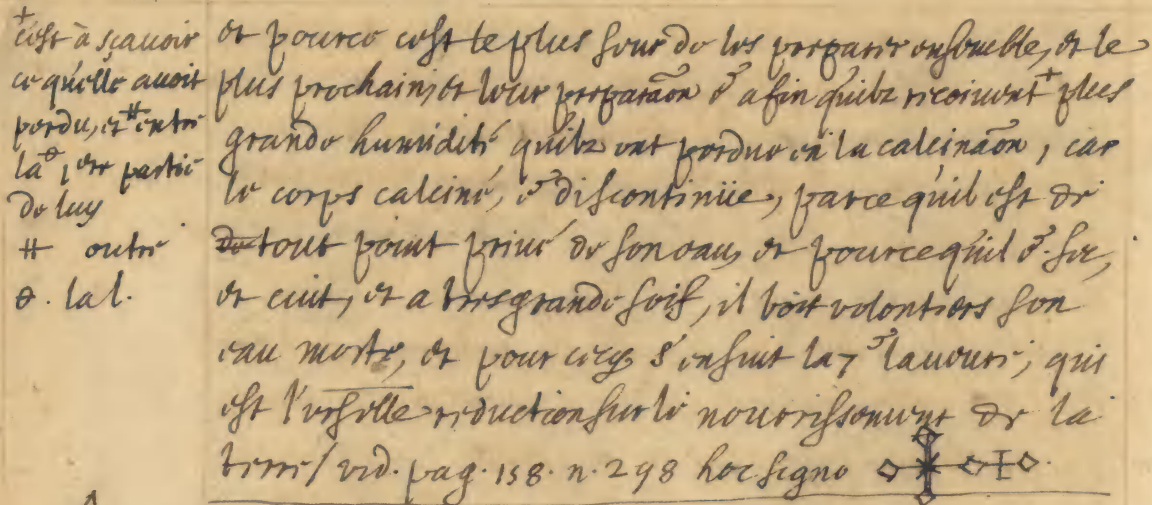 +
c'est à sçauoir
ce qu'elle auoit
perdu, et # entre
la ꝋ partie
de luy
# outre
ꝋ. la l.
et pource c'est le plus seur de les preparer ensemble, et le
plus prochain, et leur preparaõn õ afin quilz recoiuent + plus
grande humidité, quilz ont perdue en la calcinaõn, car
le corps calciné, õ discontinüe, parce qu'il est de
tout point priué de son eau, et pource qu'il õ sec,
et cuit, et a tres grande soif, il boit volontiers son
eau moste, et pour s'ensuit la 7 laueure, qui
est reduction sur le nourrissement de la
terre / vid. pag. 158. n. 298 hoc signo